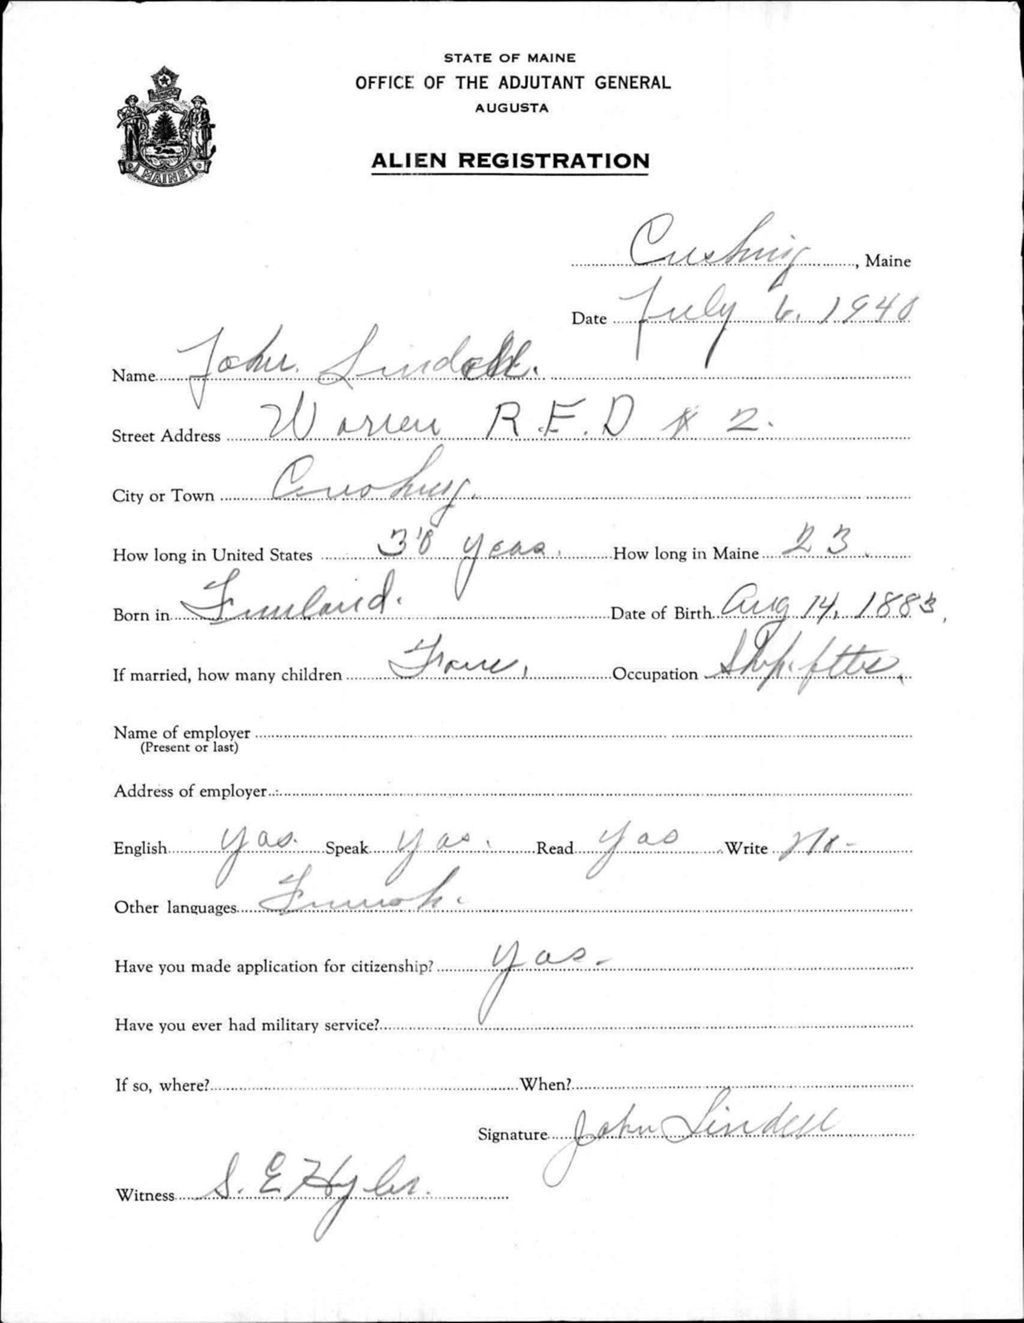 STATE OF MAINE
OFFICE OF THE ADJUTANT GENERAL
AUGUSTA
ALIEN REGISTRATION
MAINE
Cushing, Maine
Date July 6, 1940
Name John Lindell.
Street Address Warren R.F.D # 2.
City or Town Cushing.
How long in United States 38 years. How long in Maine 23.
Born in Finland. Date of Birth Aug 14, 1883,
If married, how many children Occupation
Name of employer
(Present or last)
Address of employer
English yas. Speak yas. Read yas Write No-
Other languages Finnish.
Have you made application for citizenship? yas.-
Have you ever had military service?
If so, where? When?
Signature John Lindell
Witness S. E Hyler.